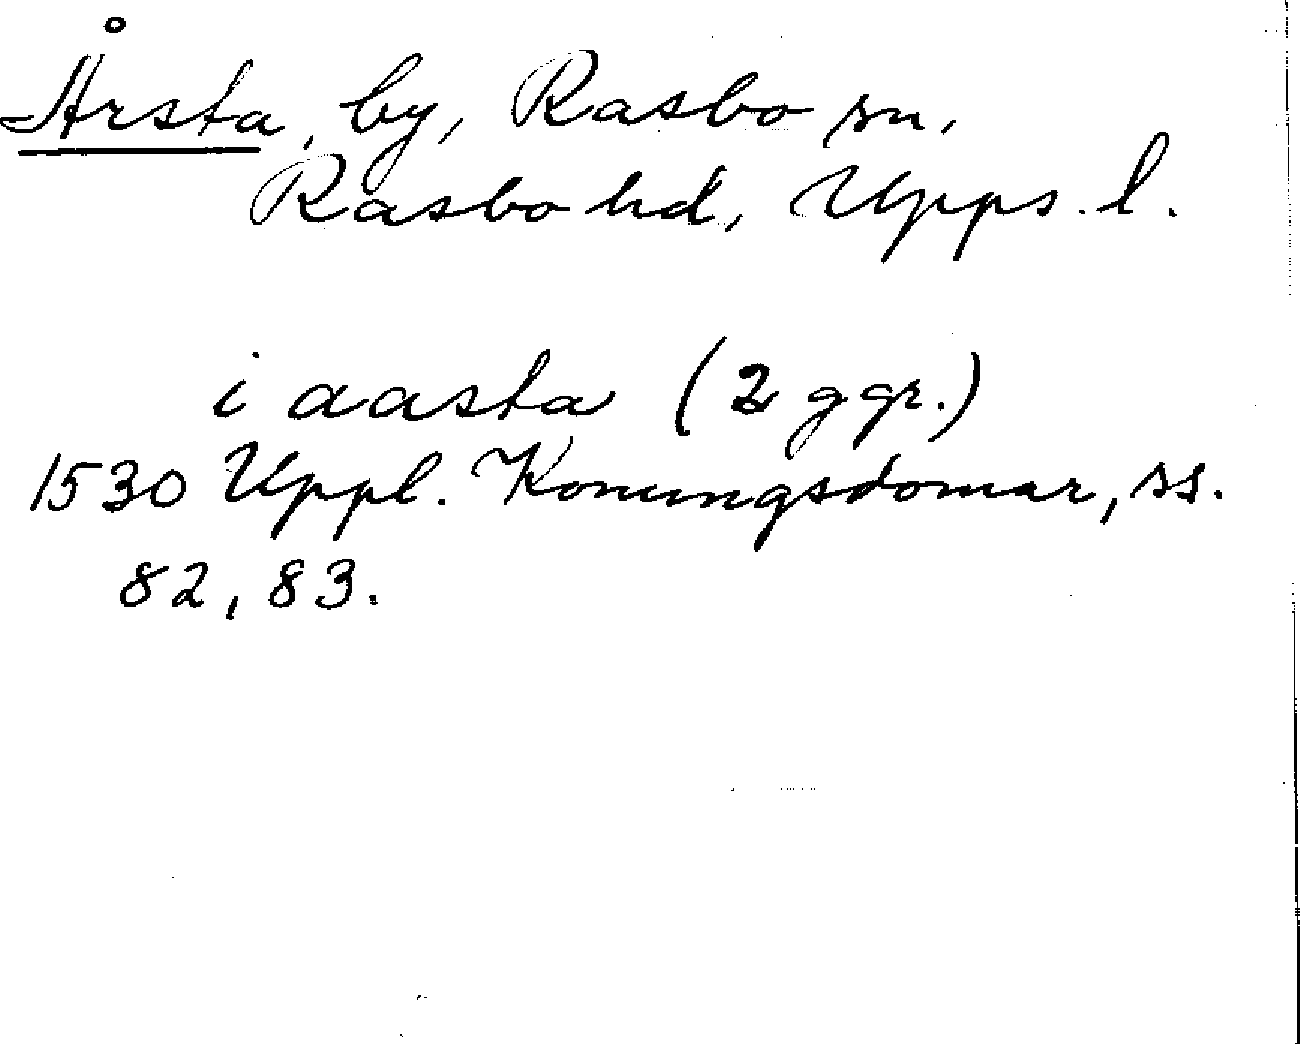 Årsta, by, Rasbo sn,
Rasbo hd, Upps. l.
i aasta (2 ggr.)
1530 Uppl. Konungsdomar, ss.
82, 83.